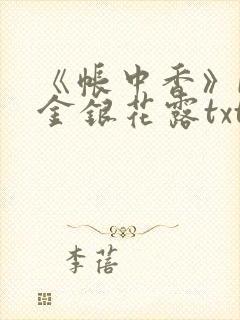 《帐中香》
金银花露txt
李蓓